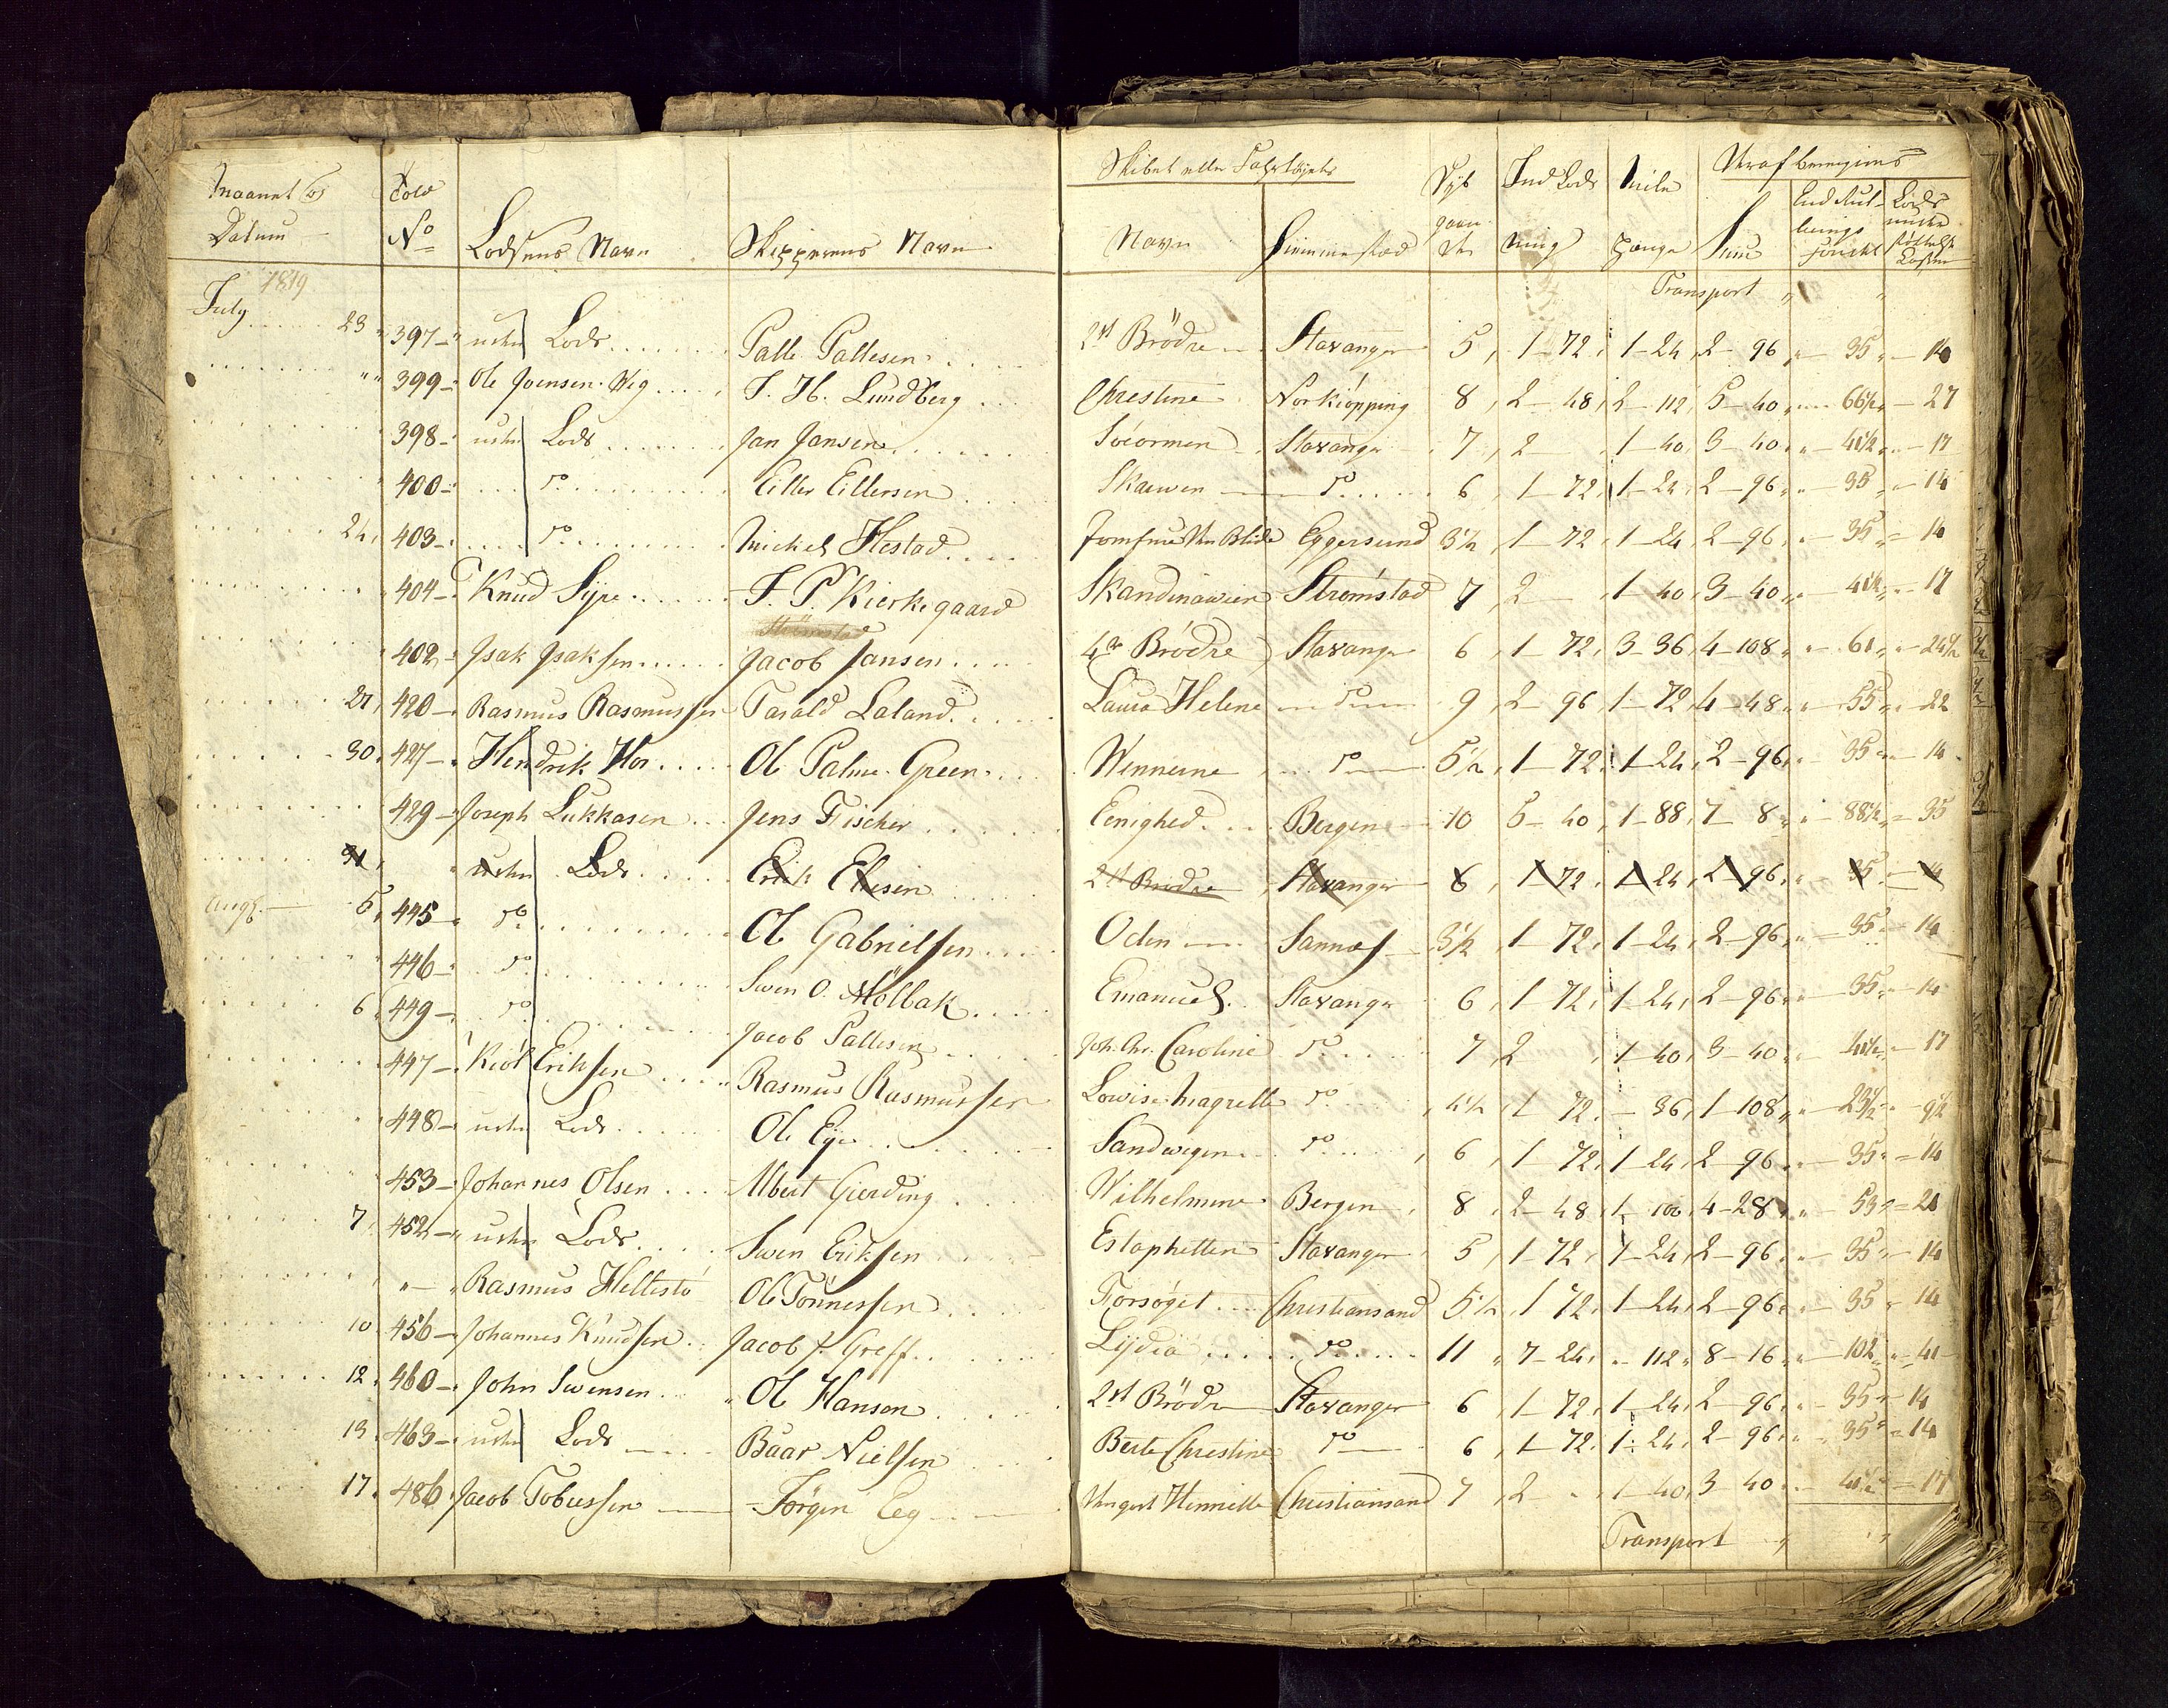 Maanet og Datum Told No Lodsens Navn Skipperens Navn Skibet eller Fartøjets Navn Hiemmestad Dyb gaaende Ind Lodsning Miile Penge Hvoraf beregnes Summa
1819 Transport " "
July 23 397 uden Lods Palle Pallesen 2de Brödre Stavanger 5 1-72 1-24 2-96 35 14
" " 399 Ole Joensen Weg J. H. Lundberg Chrestine Norkiöpping 8 2-48 2-112 5-40 66½ 27
398 uden Lods Jan Jansen Söeormen Stavanger 7 2 1-40 3-40 41½ 17
400 do Eiller Eillersen Skaewen do 6 1-72 1-24 2-96 35 14
24 403 do Michel Hestad Jomfrue Blide Eggersund 3½ 1-72 1-24 2-96 35 14
404 Knud Syre J. P. Kierkegaard Skandinavien Strömstad 7 2 1-40 3-40 41½ 17
402 Isak Isaksen Jacob Jansen 4re Brödre Stavanger 6 1-72 3-36 4-108 61 24½
27 420 Rasmus Rasmussen Tarald Laland Laura Helene do 9 2-96 1-72 4-48 55 22
30 427 Hendrik Ole Palm Green Wennerne do 5½ 1-72 1-24 2-96 35 14
429 Joseph Lukkasen Jens Fischer Eenighed Bergen 10 5-40 1-88 7-8 88½ 35
31 uden Lods Erik Eliesen 2de Brödre Stavanger 6 1-72 1-24 2-96 35 14
Augs. 5 445 do Ole Gabrielsen Oden Sannes 3½ 1-72 1-24 2-96 35 14
446 do Swen O. Mölbak Emanuel Stavanger 6 1-72 1-24 2-96 35 14
6 449 do Jacob Pallesen Joh. Chr. Caroline do 7 2 1-40 3-40 41½ 17
447 Kiöl Eriksen Rasmus Rasmussen Lowise Magrette do 4½ 1-72 -36 1-108 23½ 9½
448 uden Lods Ole Eye Sandwigen do 6 1-72 1-24 2-96 35 14
453 Johannes Olsen Albert Gierding Wilhelmine Bergen 8 2-48 1-100 4-28 53 21
7 452 uden Lods Swen Eriksen Estaphetten Stavanger 5 1-72 1-24 2-96 35 14
" Rasmus Hellestö Ole Tönnessen Forsöget Christiansand 5½ 1-72 1-24 2-96 35 14
10 456 Johannes Knudsen Jacob J. Greff Lydia do 11 7-24 112 8-16 102 41
12 460 John Swensen Ole Hansen 2de Brödre Stavanger 6 1-72 1-24 2-96 35 14
13 463 uden Lods Baar Nielsen Berte Chrestine do 6 1-72 1-24 2-96 35 14
17 486 Jacob Tobiessen Jörgen Eeg Henriette Christiansand 7 2 1-40 3-40 41½ 17
Transport " "